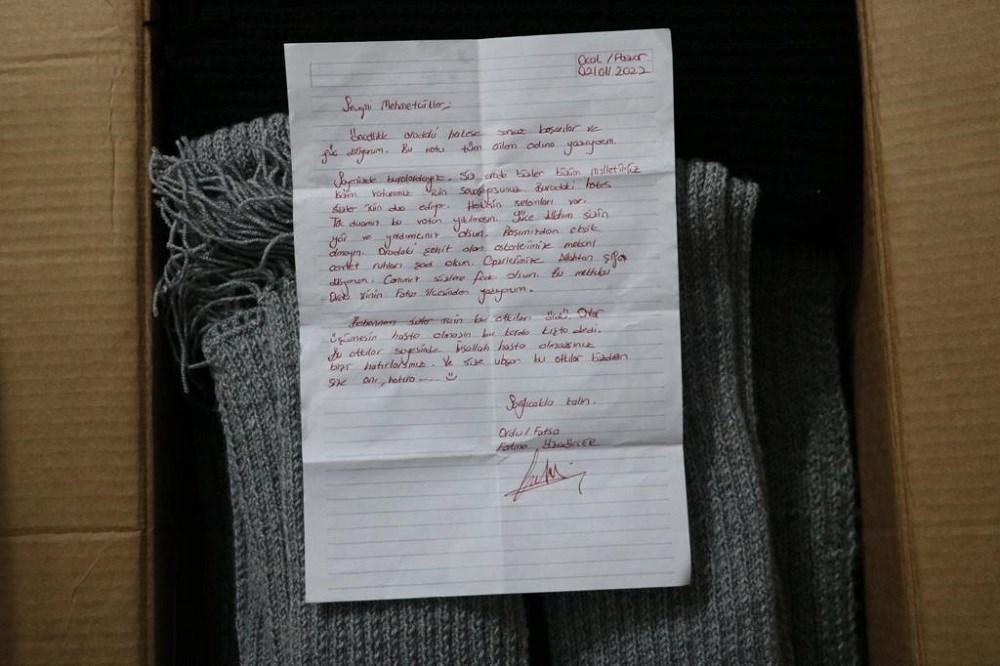 Ocak / Pazar
02/01/ 2022
Sevgili Mehmetcikler;
Öncelikle oradaki herkese sonsuz başarılar ve
güç diliyorum. Bu notu tüm ailem adına yazıyorum.
Sayenizde buralardayız. Siz orada bizler bizim milletimiz
bizim vatanımız için savaşıyosunuz. Buradaki herkes
sizler için dua ediyor. Hepsinin selamları var.
Tek duamız bu vatan yıkılmasın. Yüce Allahım sizin
yâr ve yardımcınız olsun. Başımızdan eksik
olmayın. Oradaki şehit olan askerlerimize mekanı
cennet ruhları şad olsun. Gazilerimize Allahtan şifa
diliyorum. Canımız sizlere feda olsun. Bu mektubu
Ordu ilinin Fatsa ilçesinden yazıyorum.
Babannem sizler için bu atkıları ördü. Onlar
üşümesin hasta olmasın bu karda kışta dedi.
Bu atkılar sayesinde inşallah hasta olmazsınız
bizi hatırlarsınız. Ve size ulaşan bu atkılar bizden
size anı, hatıra ......
Sağlıcakla kalın.
Ordu / Fatsa
Fatma